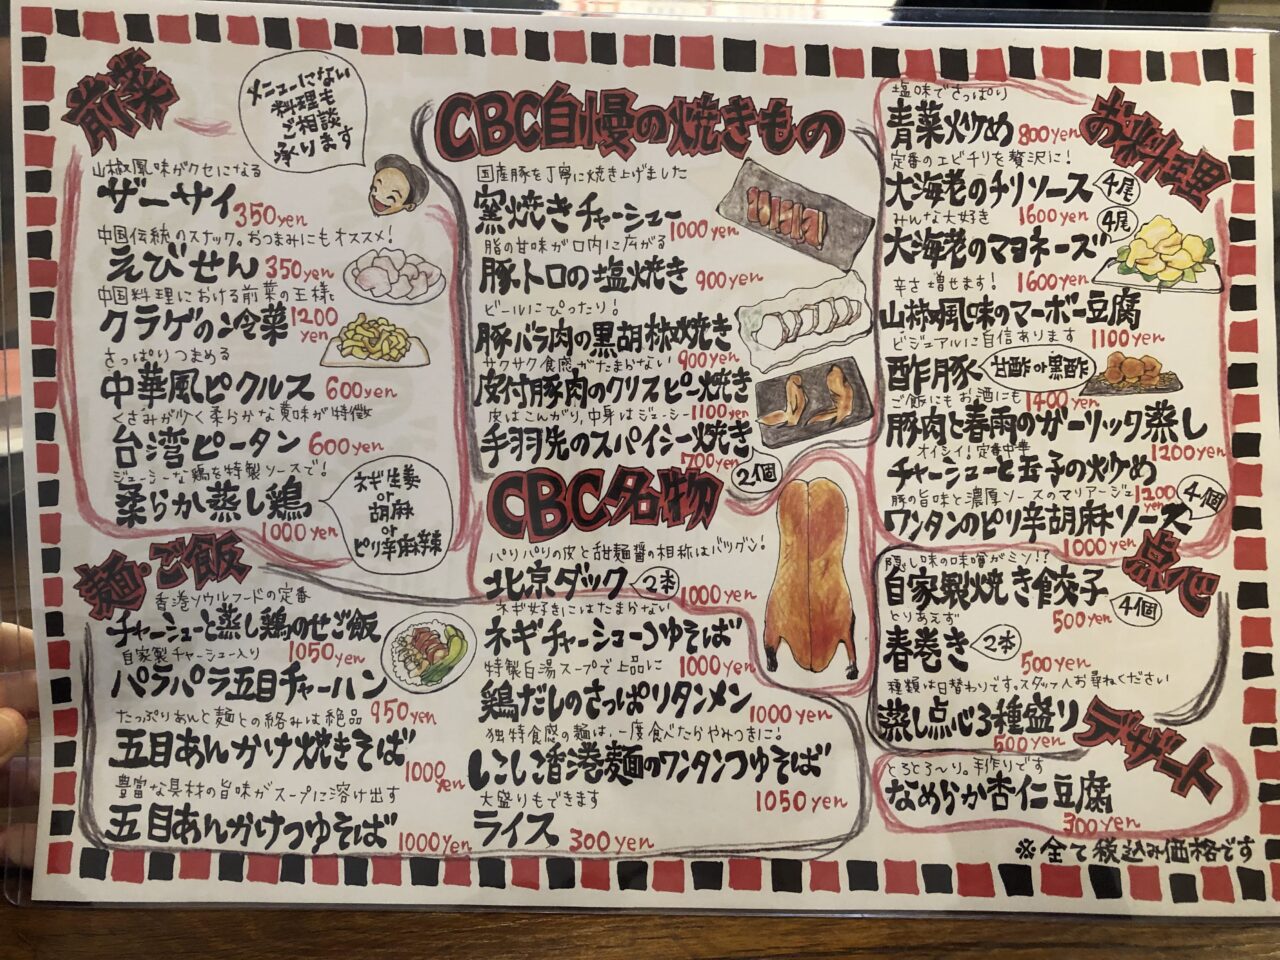 前菜
メニューにない
料理も
ご相談
承ります
山椒風味がクセになる
ザーサイ
350yen
中国伝統のスナック。おつまみにもオススメ!
えびせん
350yen
中国料理における前菜の王様と
クラゲの冷菜
1200
yen
さっぱりつまめる
中華風ピクルス
600yen
くさみが少く柔らかな黄味が特徴
台湾ピータン
600yen
ジューシーな鶏を特製ソースで!
柔らか蒸し鶏
1000yen
ネギ生姜
or
胡麻
or
ピリ辛麻辣
CBC自慢の焼きもの
国産豚を丁寧に焼き上げました
窯焼きチャーシュー
1000yen
脂の甘味が口内に広がる
豚トロの塩焼き
900yen
ビールにぴったり!
豚バラ肉の黒胡椒焼き
900yen
サクサク食感がたまらない
皮付豚肉のクリスピー焼き
1100yen
皮はこんがり、中身はジューシー
手羽先のスパイシー焼き
700yen
2個
CBC名物
パリパリの皮と甜麺醤の相称はバツグン!
北京ダック
2本
1000yen
お料理
塩味でさっぱり
青菜炒め
800yen
定番のエビチリを贅沢に!
大海老のチリソース
4尾
1600yen
みんな大好き
大海老のマヨネーズ
4尾
1600yen
辛さ増せます!
山椒風味のマーボー豆腐
1100yen
ビジュアルに自信あります
酢豚
甘酢or黒酢
1400yen
ご飯にもお酒にも
豚肉と春雨のガーリック蒸し
1200yen
オイシイ!定番中華
チャーシューと玉子の炒め
1200
yen
豚の旨味と濃厚ソースのマリアージュ
ワンタンのピリ辛胡麻ソース
4個
1000yen
麺・ご飯
香港ソウルフードの定番
チャーシューと蒸し鶏のせご飯
1050yen
自家製チャーシュー入り
パラパラ五目チャーハン
950yen
たっぷりあんと麺との絡みは絶品
五目あんかけ焼きそば
1000
yen
豊富な具材の旨味がスープに溶け出す
五目あんかけつゆそば
1000yen
ネギ好きにはたまらない
ネギチャーシューつゆそば
1000yen
特製白湯スープで上品に
鶏だしのさっぱりタンメン
1000yen
独特食感の麺は、一度食べたらやみつきに!
しこしこ香港麺のワンタンつゆそば
1050yen
大盛りもできます
ライス
300yen
点心
隠し味の味噌がミソ!?
自家製焼き餃子
4個
500yen
とりあえず
春巻き
2本
500yen
種類は日替わりです。スタッフへお尋ねください
蒸し点心3種盛り
500yen
デザート
とろとろ〜り。手作りです
なめらか杏仁豆腐
300yen
※全て税込み価格です